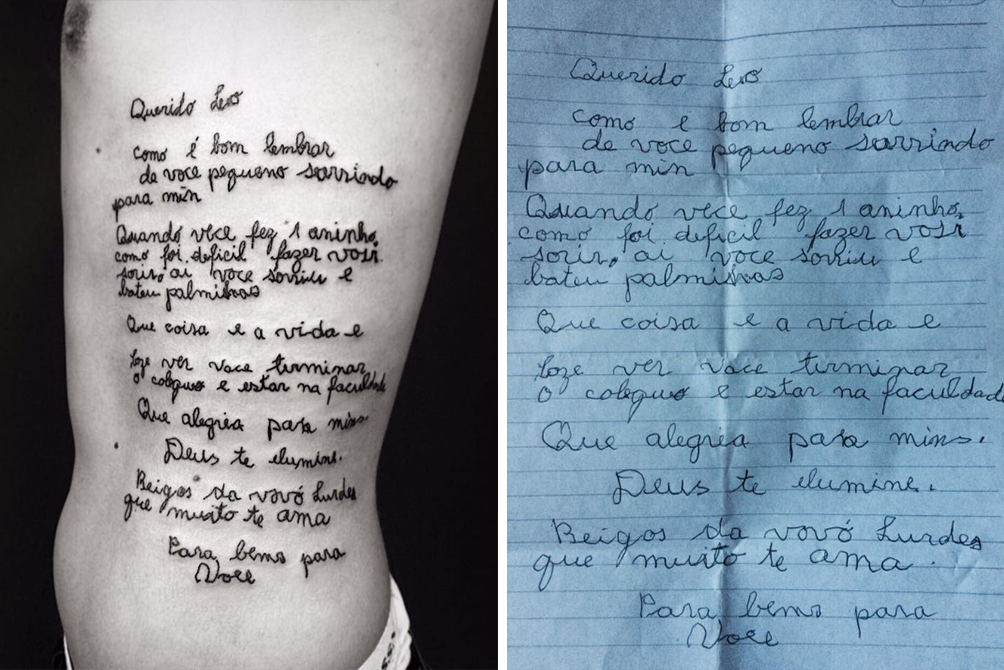 Querido Leo
como é bom lembrar
de voce pequeno sorrindo
para min
Quando vece fez 1 aninho,
como foi deficil fazer vose
sorir, ai voce sorriu e
bateu palminhas
Que coisa e a vida e
foze ver voce terminar
o coleguio e estar na faculdade
Que alegria para mins.
Deus te elumine.
Beigos da vovó Lurdes
que muito te ama
Para bems para
Voce
Querido Leo
como e bom lembrar
de voce pequeno sorrindo
para min
Quando vece fez 1 aninho,
como foi deficil fazer vose
sorir, ai voce sorriu e
bateu palminhas
Que coisa e a vida e
foze ver voce terminar
o coleguio e estar na faculdade
Que alegria para mins.
Deus te elumine.
Beigos da vovó Lurdes
que muito te ama.
Para bems para
Voce